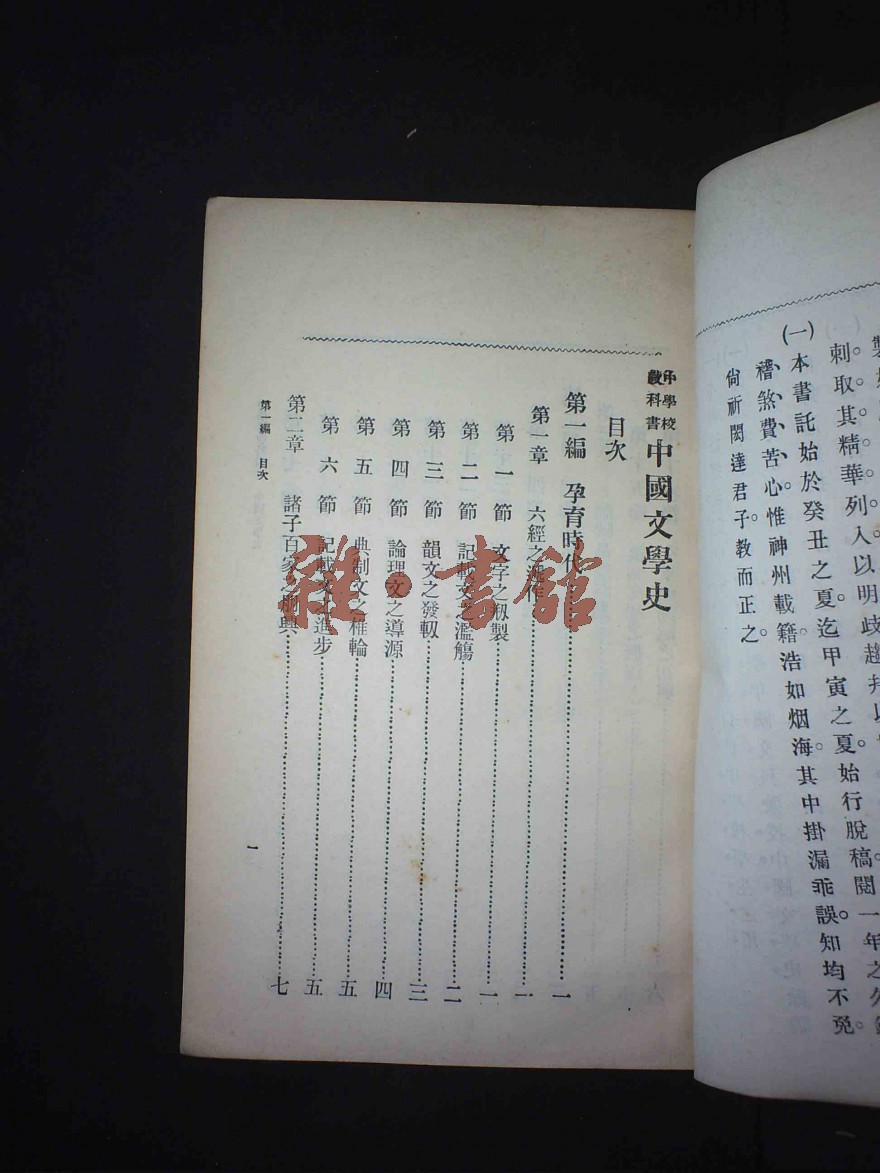 刺取其精華。列入以明歧趨
(一)本書託始於癸丑之夏。迄甲寅之夏。始行脫稿。閱一年之久
稽煞費苦心。惟神州載籍。浩如烟海。其中掛漏乖誤。知均不免。
尙祈閎達君子。教而正之。
中學校教科書 中國文學史
目次
第一編 孕育時代 一
第一章 六經之 一
第一節 文字之刱製 一
第二節 記載文之濫觴 二
第三節 韻文之發軔 三
第四節 論理文之導源 四
第五節 典制文之椎輪 五
第六節 記載文之進步 五
第二章 諸子百家之勃興 七
第一編 目次
一
雜·書館